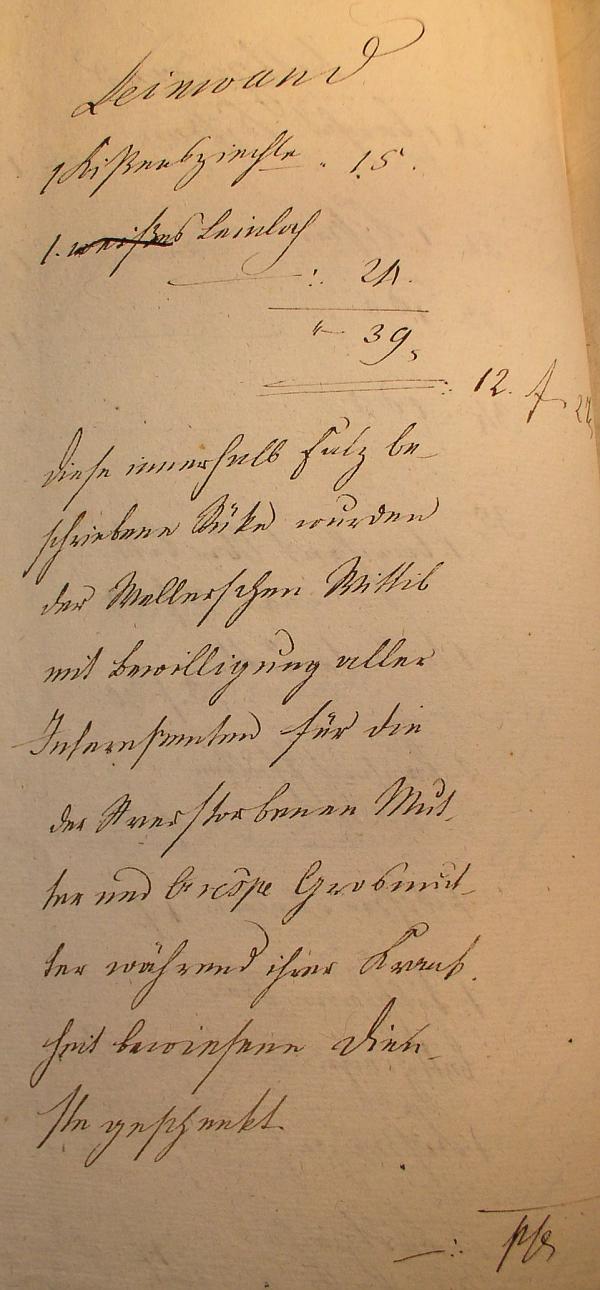 Leinwand
1 Kißenbziechle " 15.
1. weißes Leinlach
: 24.
" 39,
: 12. f 22
diese innerhalb falz be-
schriebene Stüke wurden
der Wellerschen Wittib
mit bewilligung aller
Interessenten für die
der Verstorbenen Mut-
ter und resp. Grosmut-
ter während ihrer Krank-
heit bewiesene Dien-
ste geschenkt.